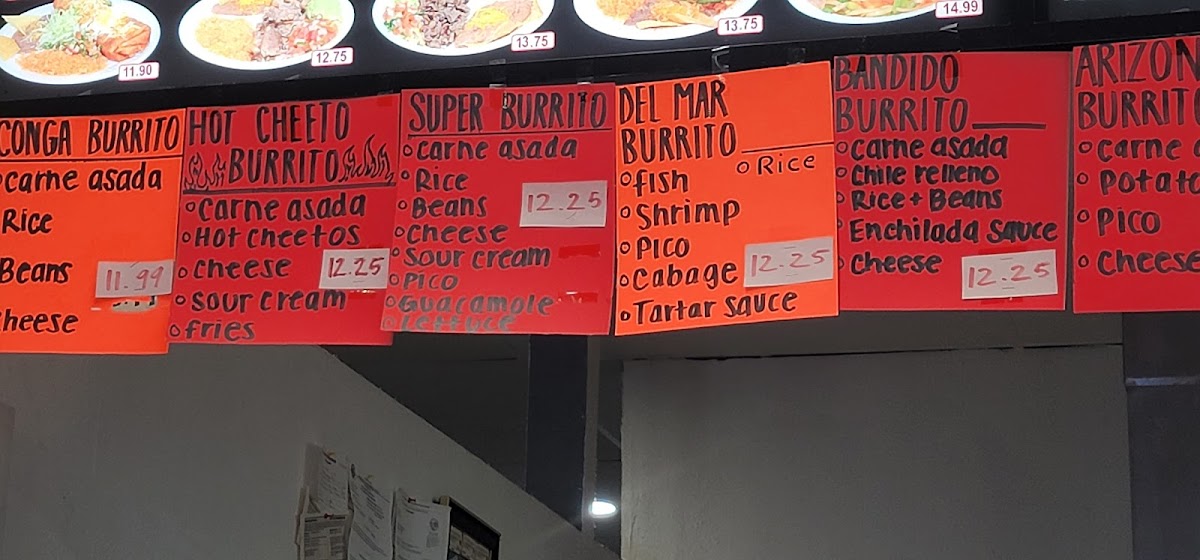 11.90
12.75
13.75
13.75
14.99
CONGA BURRITO
carne asada
Rice
Beans
11.99
cheese
HOT CHEETO
BURRITO
carne asada
Hot cheetos
cheese
12.25
sour cream
fries
SUPER BURRITO
carne asada
Rice
Beans
12.25
cheese
sour cream
Pico
Guacamole
Lettuce
DEL MAR
BURRITO
Rice
fish
Shrimp
Pico
Cabage
12.25
Tartar sauce
BANDIDO
BURRITO
carne asada
chile relleno
Rice + Beans
Enchilada sauce
cheese
12.25
ARIZON
BURRITO
carne a
Potato
Pico
cheese